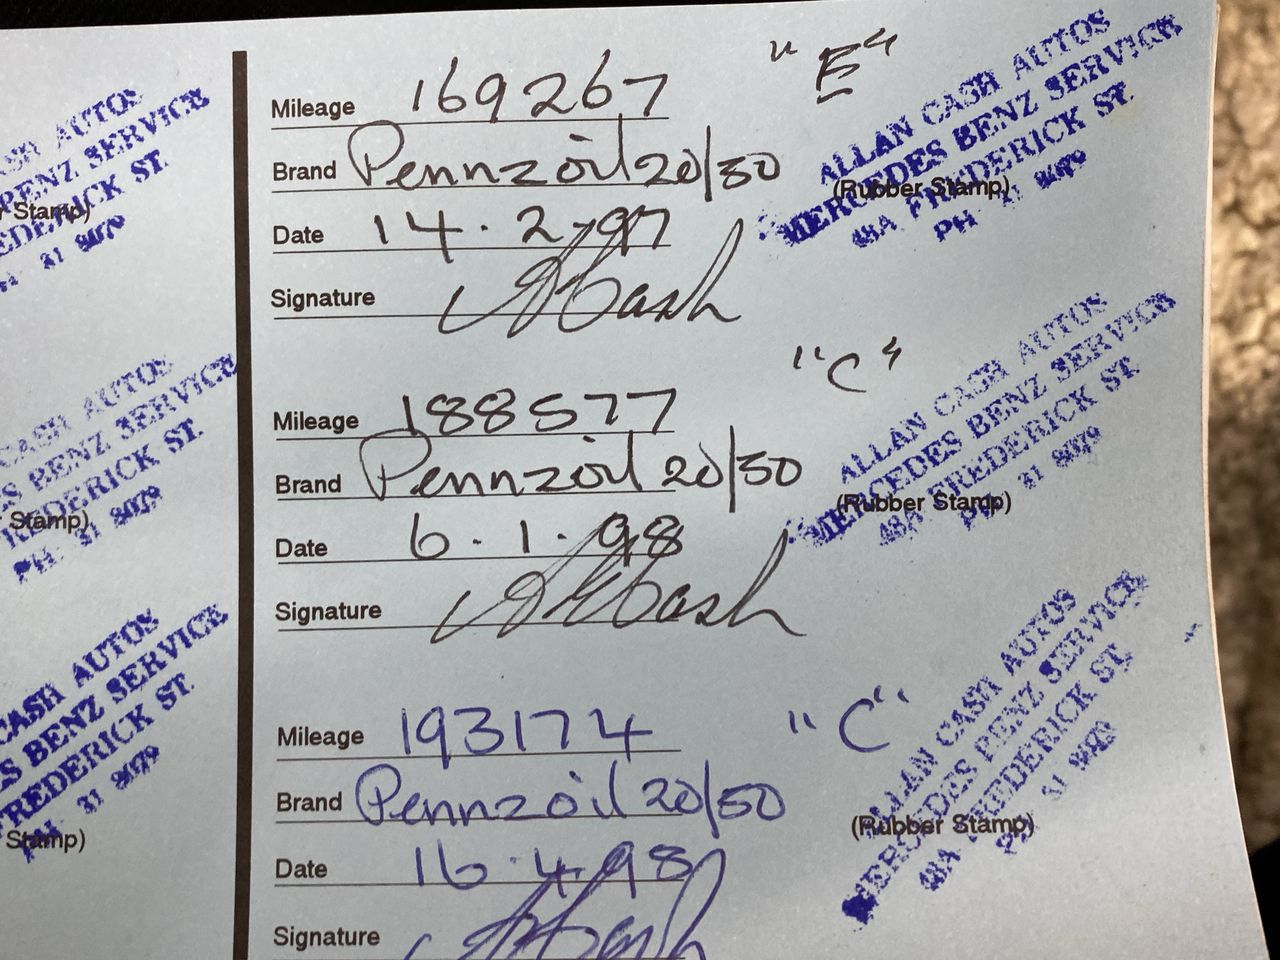 ASH AUTOS
BENZ SERVICE
EDERICK ST.
r Stamp)
31 8079
CASH AUTOS
S BENZ SERVICE
REDERICK ST.
Stamp)
PH 31 8079
CASH AUTOS
S BENZ SERVICE
FREDERICK ST.
PH 31 8079
Stamp)
Mileage 169267 "E"
Brand Pennzoil 20/50
Date 14.2.97
Signature A Cash
ALLAN CASH AUTOS
MERCEDES BENZ SERVICE
48A FREDERICK ST.
(Rubber Stamp)
PH
Mileage 188577 "C"
Brand Pennzoil 20/50
Date 6.1.98
Signature A Cash
ALLAN CASH AUTOS
MERCEDES BENZ SERVICE
48A FREDERICK ST.
(Rubber Stamp)
PH 31 8079
Mileage 193174 "C"
Brand Pennzoil 20/50
Date 16.4.98
Signature A Cash
ALLAN CASH AUTOS
MERCEDES BENZ SERVICE
48A FREDERICK ST.
(Rubber Stamp)
PH 31 8079